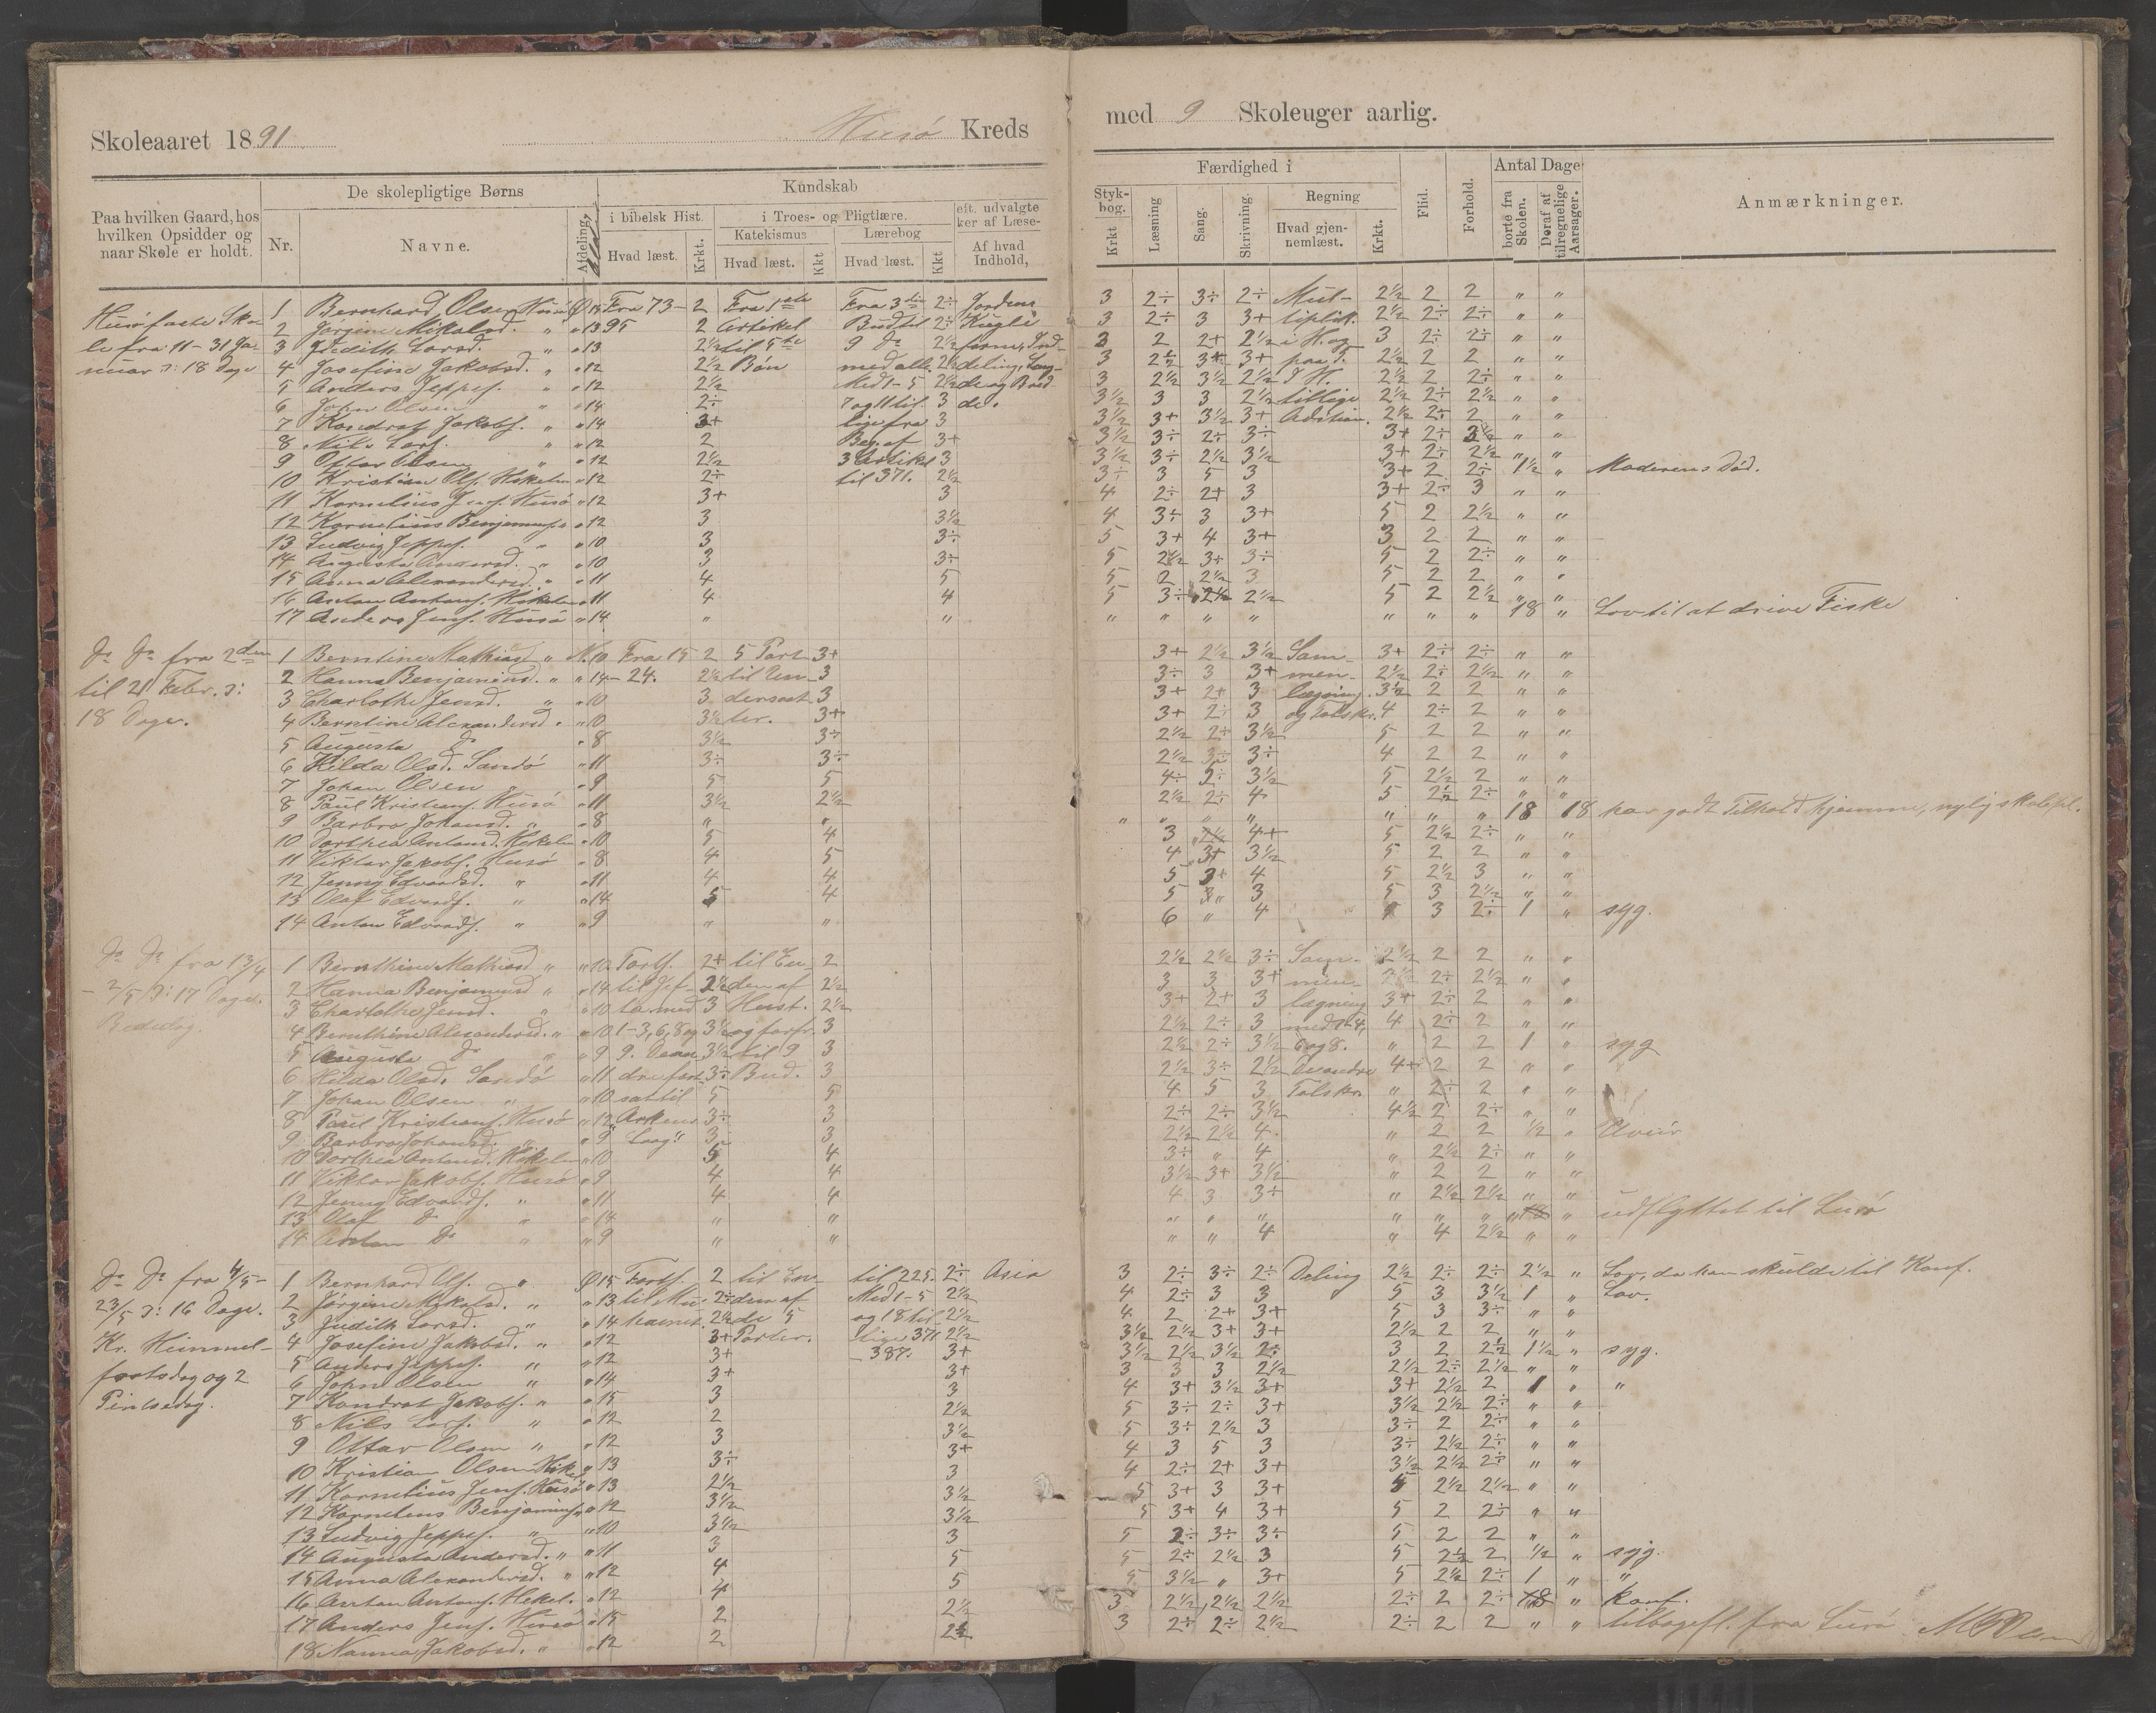 Skoleaaret 1891
Husø Kreds
med 9 Skoleuger aarlig.
Paa hvilken Gaard, hos hvilken Opsidder og naar Skole er holdt.
De skolepligtige Børns
Nr.
Navne.
Afdeling,
Kundskab
i bibelsk Hist.
Hvad læst.
Krkt.
i Troes- og Pligtlære.
Katekismus
Hvad læst.
Kkt
Lærebog
Hvad læst.
Kkt
eft. udvalgte
ker af Læse-
Af hvad Indhold,
Styk-
bog.
Krkt
Færdighed i
Læsning
Sang.
Skrivning.
Regning
Hvad gjen-
nemlæst.
Krkt.
Flid.
Forhold.
Antal Dage
borte fra Skolen.
Deraf af tilregnelige Aarsager.
Anmærkninger.
Husø faste Sko
le fra 11-31 Ja-
nuar ɔ: 18 Dage
1 Bernhard Olsen Husø Ø 15 Fra 73- 2 Fra 1ste Fra 3die 2÷ Jordens 3 2÷ 3÷ 2÷ Mul- 2½ 2 2 " "
2 Jørgine Mikelsd. " " 13 95 2 Artikel Bud til 2÷ Kugle 3 2÷ 3 3+ tiplik. 2½ 2÷ 2÷ " "
3 Judith Larsd. " " 13 2½ til 5te 9 de 2½ form, Ind- 3 2 2+ 2½ i H. og 3 2÷ 2÷ " "
4 Josefine Jakobsd. " " 12 2½ Bøn med alle 2½ deling, Læng- 3 2½ 3+ 3+ paa T. 2½ 2 2 " "
5 Anders Jeppes. " " 12 2½ Med 1-5 2½ de og Bred 3 2½ 3½ 2½ I H. 2½ 2 2÷ " "
6 John Olsen " " 14 2÷ 7 og 11 til 3 de. 3½ 3 3 2½ tillige 2½ 2÷ 2½ " "
7 Kondrat Jakobs. " " 14 3+ lige fra 3 3½ 3+ 3½ 3+ Adition. 2½ 2÷ 2 " "
8 Nils Lars. " " 12 2 Beg. af 3+ 3½ 3÷ 2÷ 3÷ 3+ 2÷ 3½ " "
9 Ottar Olsen " " 12 2½ 3 Artikel 3 3½ 3÷ 2½ 3½ 3+ 2÷ 2½ " "
10 Kristian Ols. Hikelen " 12 2÷ til 371. 2½ 3÷ 3 5 3 3+ 2 2÷ 1½ " Moderens Død.
11 Kornelius Jens. Husø " 12 3+ 3 4 2÷ 2+ 3 3+ 2÷ 3 " "
12 Kornelius Benjamins. " " 12 3 3½ 4 3÷ 3 3+ 5 2 2½ " "
13 Ludvig Jeppes. " " 10 3 3÷ 5 3+ 4 3+ 3 2 2 " "
14 Augusta Andersd. " " 10 3 3÷ 5 2½ 3+ 3÷ 5 2 2÷ " "
15 Anna Alexandersd. " " 11 4 5 5 2 2½ 3 5 2 2 " "
16 Anton Antons. Hikelen " 11 4 4 5 3÷ 2½ 2½ 5 2 2½ " "
17 Anders Jens. Husø " 14 " " " " " " " " " 18 " Lov til at drive Fiske
Do Do fra 2den
til 21 Febr. ɔ:
18 Dage.
1 Berntine Mathiasd " N. 10 Fra 15 2 5 Part 3+ 3+ 2½ 3½ Sam- 3+ 2÷ 2÷ " "
2 Hanna Benjamins. " " 14 - 24. 2½ til An- 3 3÷ 3 3+ men- 2½ 2÷ 2½ " "
3 Charlothe Jensd. " " 10 3 dersock 3 3+ 2+ 3 lægning 3½ 2 2 " "
4 Berntine Alexandersd. " " 10 3½ ter. 3+ 3+ 2÷ 3 og Talskr. 4 2÷ 2 " "
5 Augusta do " 8 3½ 3÷ 2½ 2÷ 3½ 5 2 2 " "
6 Hilda Olsd. Sandø " 11 3÷ 3÷ 2½ 3÷ 3÷ 4 2 2 " "
7 Johan Olsen " " 9 5 5 4÷ 2÷ 3½ 5 2½ 2 " "
8 Paul Kristians. Husø " 11 3½ 2½ 2½ 2÷ 4 5 2½ 2÷ " "
9 Barbra Johansd. " " 8 " " " " " " " " " 18 18 har godt Tilhold hjemme, nylig skolepl.
10 Dorthea Antonsd. Hekelen " 10 5 4 3 2½ 4+ 5 2½ 2÷ " "
11 Viktor Jakobs. Husø " 8 4 5 4 3+ 3½ 5 2 2 " "
12 Jenny Edvardsd. " " 11 4 4 5 3+ 4 5 2½ 3 " "
13 Olaf Edvards. " " 14 5 4 5 3 3 5 3 2½ " "
14 Anton Edvards. " " 9 " " 6 " 4 5 3 2÷ 1 " syg.
Do Do fra 13/4
- 2/5 ɔ: 17 Dage.
Bededag.
1 Bernthine Mathiasd " " 10 Forts. 2+ til En- 2 2½ 2½ 3÷ Sam- 2½ 2 2 " "
2 Hanna Benjaminsd " " 14 til Jef- 2½ den af 2½ 3 3 3+ men- 2½ 2÷ 2½ " "
3 Charlothe Jensd. " " 10 ta med 3 Hust. 2½ 3+ 2+ 3 lægning 3+ 2÷ 2 " "
4 Bernthine Alexandersd. " " 10 1-3, 6, 8 og 3½ og forfr. 3 2½ 2÷ 3 med 1-4, 4 2÷ 2 " "
5 Augusta do " " 9 9. 3½ til 9 3 2½ 2÷ 3½ 6 og 8. " 2 2 1 " syg
6 Hilda Olsd. Sandø " 11 3÷ Bud. 3 2½ 3÷ 2½ De andre 4+ 2 2 " "
7 Johan Olsen " " 10 sat til 5 5 4 5 3 Talskr. " 2÷ 2 " "
8 Paul Kristians. Husø " 12 Arkens 3÷ 3 2÷ 2÷ 3½ 4½ 2 2÷ " "
9 Barbra Johansd. " " 9 3 3 2½ 2½ 4 " 2 2 ½ " Uveir
10 Dorthea Antonsd. Hikelen " 10 5 4 3÷ " 4 " 2½ 2÷ " "
11 Viktor Jakobs. Husø " 9 4 4 3½ 3+ 3½ " 2 2 " "
12 Jenny Edvards. " " 11 4 4 4 3 3+ " 2½ 2½ " "
13 Olaf do " " 14 " " " " " " " " " udflyttet til Lurø
14 Anton Do " " 9 " " " " 4 " 4 2½ " "
Do Do fra 4/5-
23/5 ɔ: 16 Dage.
Kr. Himmel-
fartsdag og 2
Pintsedag.
1 Bernhard Ols. " Ø 15 Forts. 2 til En- til 225. 2÷ Asia 3 2÷ 3÷ 2÷ Deling 2½ 2÷ 2÷ 2½ " Lov, da han skulde til Konf.
2 Jørgine Mikelsd. " " 13 til Mu- 2÷ den af Med 1-5 2½ 4 2÷ 3 3 5 3 3½ 1 " Lov.
3 Judith Larsd. " " 14 hamet. 2½ de 5 og 18 til 2½ 4 2 2+ 3+ 5 3 3÷ " "
4 Josefine Jakobsd. " " 12 3+ Parter. lige 371 2½ 3½ 2½ 3+ 3+ 2½ 2 2 " "
5 Anders Jeppes. " " 12 3+ - 387. 3+ 3½ 2½ 3½ 2÷ 3 2 2½ 1½ " syg.
6 John Olsen " " 14 3+ 3+ 3 3 3 2½ 2½ 2÷ 2½ " "
7 Kondrat Jakobs. " " 15 3 3 4 3+ 3½ 3+ 3+ 2½ 2 1 " "
8 Nils Lars. " " 12 2 2½ 5 3÷ 2÷ 3+ 3½ 2½ 2÷ " "
9 Ottar Olsen " " 12 3 3½ 5 3÷ 2½ 3 3÷ 2 2÷ " "
10 Kristian Olsen Hikel " 13 3÷ 3+ 4 3 5 3 3÷ 2½ 2÷ " "
11 Kornelius Jens. Husø " 13 2½ 3 4 2÷ 2+ 3+ 3½ 2½ 2÷ " "
12 Kornelius Benjamins. " " 12 3½ 3½ 5 3+ 3 3+ 5 2½ 2½ " "
13 Ludvig Jeppes. " " 10 3½ 3½ 5 3+ 4 3+ 5 2 2÷ " "
14 Augusta Andersd. " " 11 3 3 5 2÷ 3÷ 3÷ 5 2 2 " "
15 Anna Alexandersd. " " 12 4 5 5 2÷ 2½ 3 5 2½ 2 ½ " syg.
16 Anton Antons. Hekel. " 12 4 5 5 3½ " 3+ 5 2½ 2÷ 1 " "
17 Anders Jens. Husø " 15 2 2½ 3 2½ 2½ 2½ 2÷ 2 2÷ " Konf.
18 Nanna Jakobsd. " " 12 2 2½ 3 2÷ 2÷ 2½ 2÷ 2 2 " " tilbagefl. fra Lurø